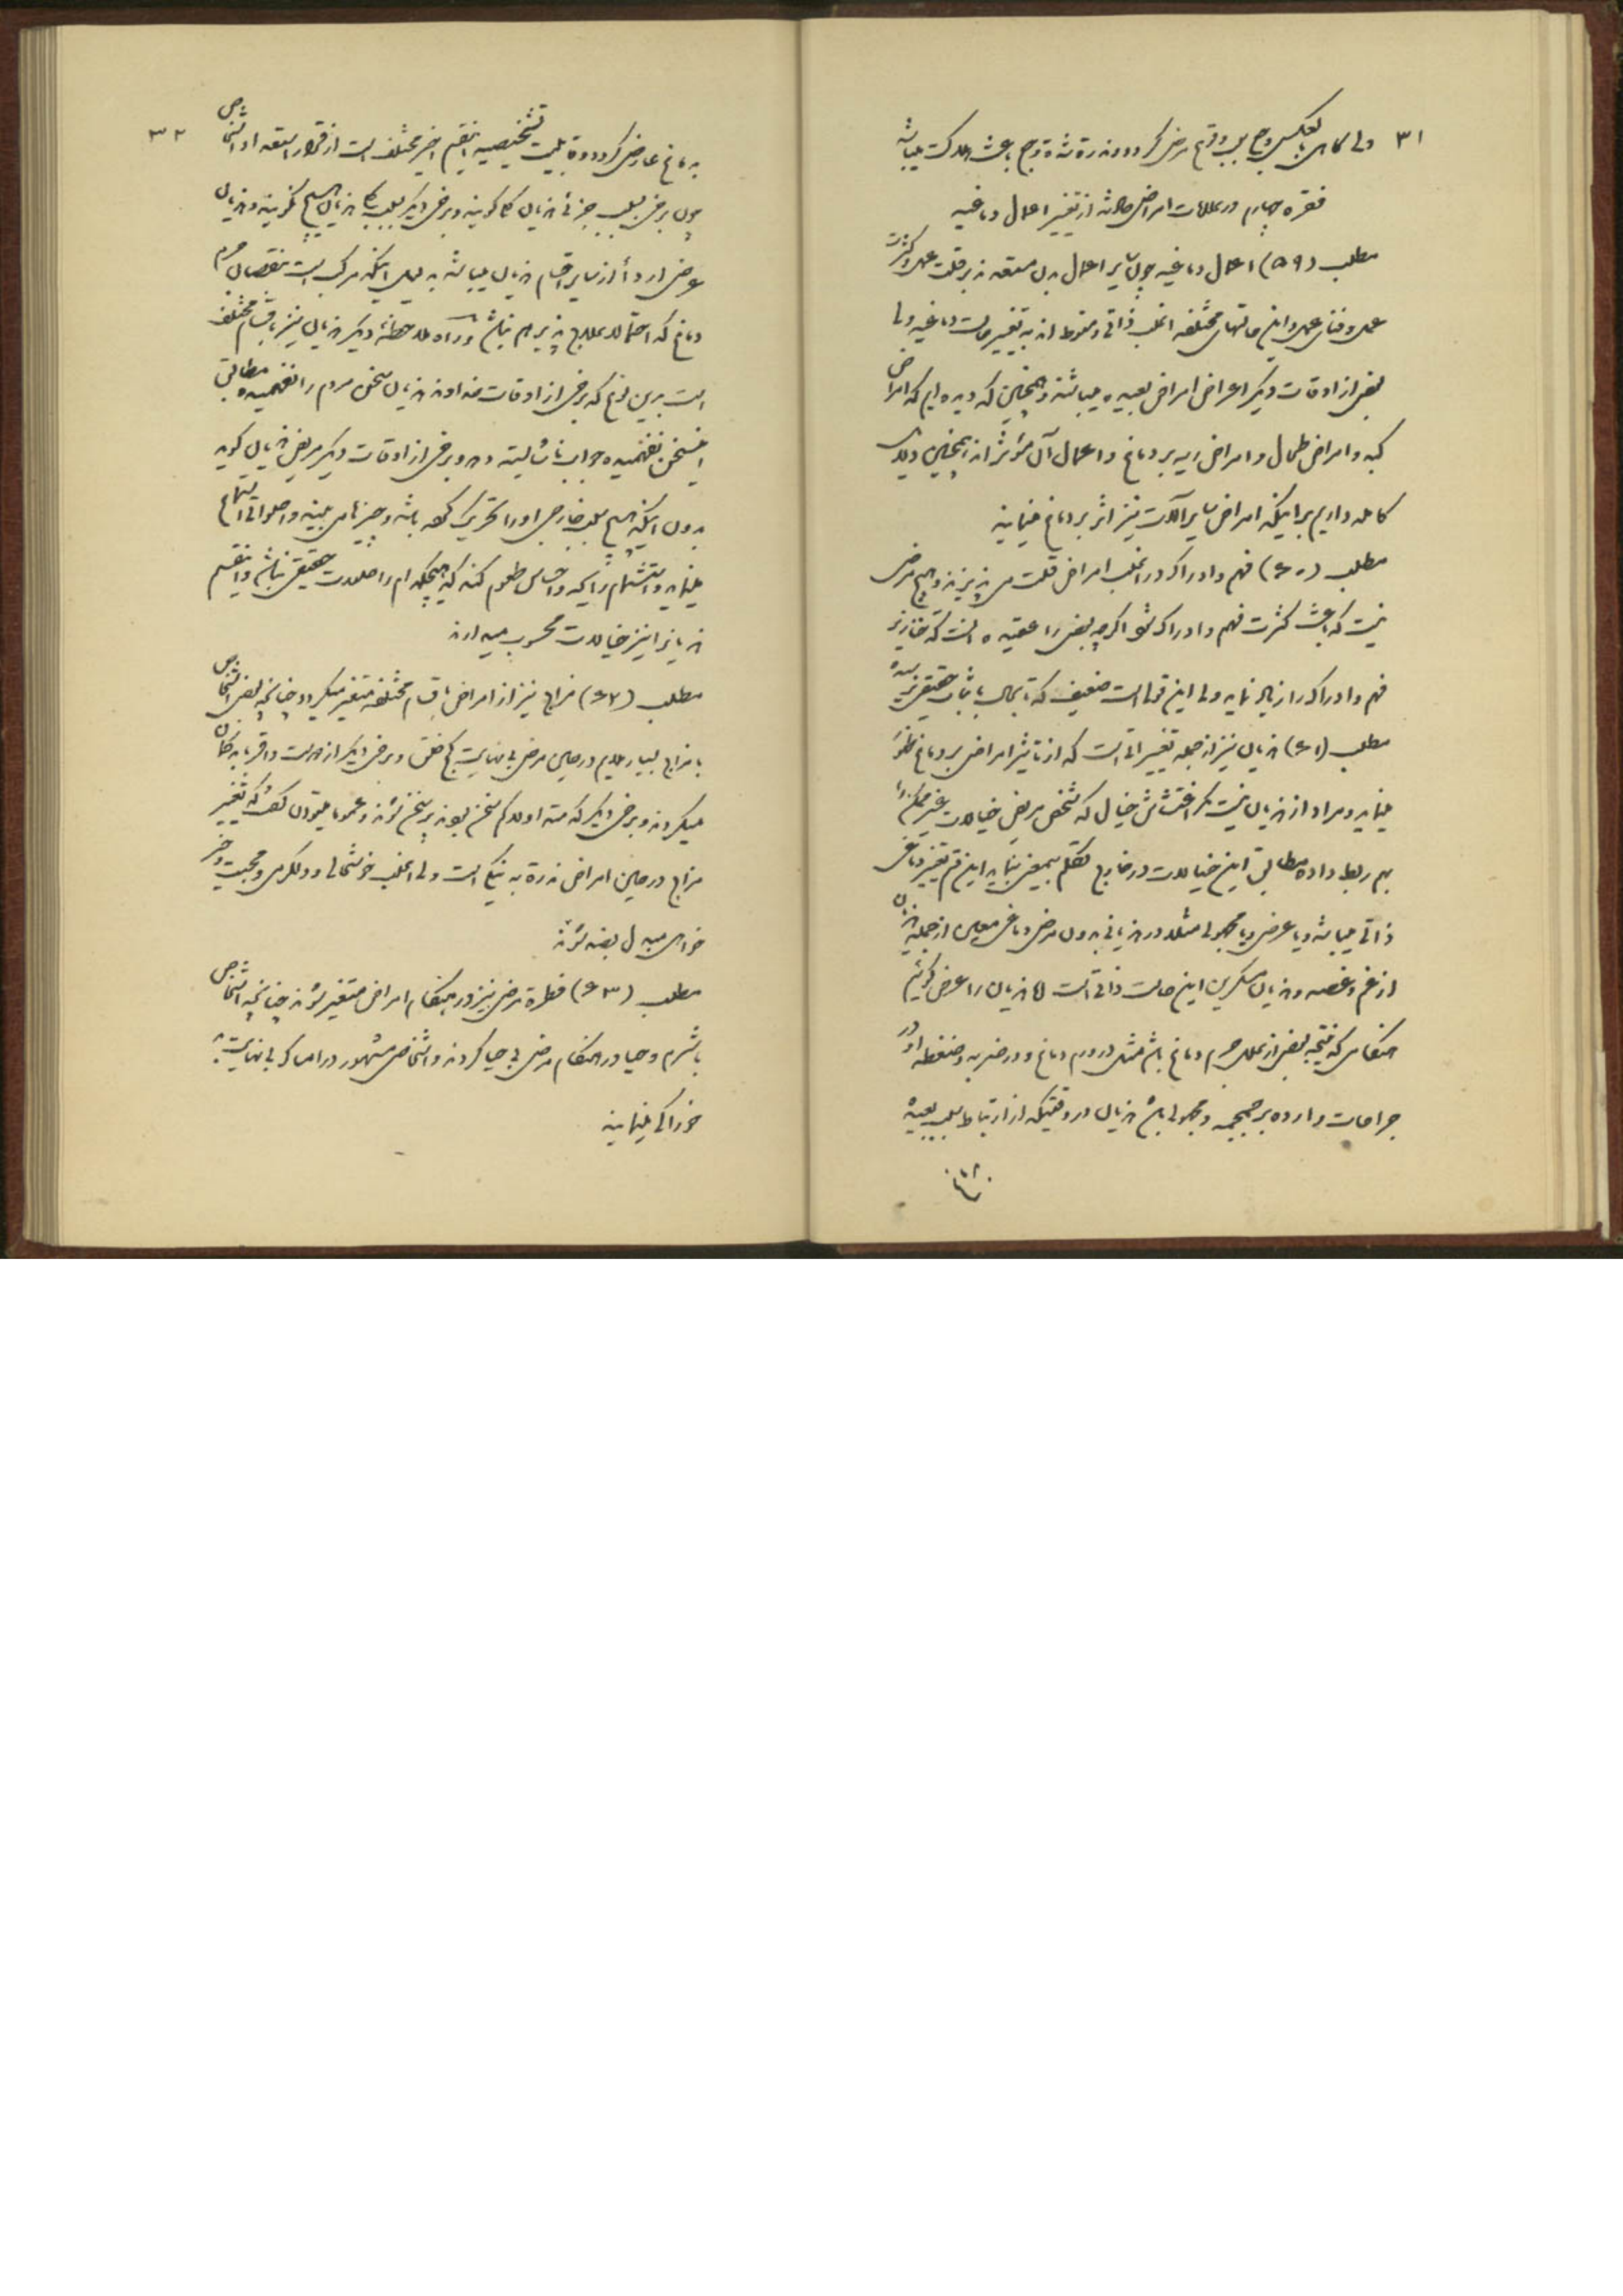 ۳۱
ولی گاهی بالعکس وجع سبب وقوع مرض گردد و ندرة شدة وجع باعث هلاکت میباشد
فقره چهارم در علامات امراض حادثه از تغییر اعمال دماغیه
مطلب (۵۹) اعمال دماغیه چون سایر اعمال بدن مستعدند بر قلت عمل و کثرت
عمل و فنای عمل و این حالتهای مختلفه اغلب ذاتی و منوط اند به تغییر حالت دماغیه ولی
بعضی از اوقات دیگر اعراض امراض بعیده میباشند و همچنین که دیده ایم که امراض
کبد و امراض طحال و امراض ریه بر دماغ و اعمال آن مؤثر اند همچنین دلایل
کامله داریم بر اینکه امراض سایر آلات نیز اثر بر دماغ مینمایند
مطلب (۶۰) فهم و ادراک در اغلب امراض قلت می پذیرند و هیچ مرض
نیست که باعث کثرت فهم و ادراک شود اگرچه بعضی را عقیده آنست که خنازیر
فهم و ادراک را زیاد نماید ولی این قولی است ضعیف که تا بحال باثبات حقیقی نرسیده
مطلب (۶۱) هذیان نیز از جمله تغییراتی است که از تاثیر امراض بر دماغ ظهور
مینماید و مراد از هذیان نیست مگر اغتشاش خیال که شخص مریض خیالات غیر ممکن را
بهم ربط داده مطابق این خیالات در خارج تکلم بیمعنی نماید این قسم تغییر دماغی
ذاتی میباشد و یا عرضی و یا مجهولی مثلا در هذیانی بدون مرض دماغی معین از جمله هذیان
از غم و غصه و هذیان مسکرین این حالت ذاتی است اما هذیان را عرضی گوئیم
هنگامی که نتیجه بعضی از علل جرم دماغ باشد مثل در ورم دماغ و در ضربه و ضغطه او و در
جراحات وارده بر جمجمه و مجهولی باشد هذیان در وقتیکه از ارتباط سبب بعید
۳۲
بدماغ عارض گردد و قابلیت تشخیصیه این قسم اخیر مختلف است از قرار استعداد اشخاص
چون برخی بسبب جزئی هذیان کلی گویند و برخی دیگر بسبب کلی هذیان هیچ نگویند و هذیان
عرضی اردأ از سایر اقسام هذیان میباشد به دلیل اینکه مرکب است بنقصان جرم
دماغ که احتمالا علاج پذیر هم نباشد و از راه ملاحظات دیگر هذیان نیز باقسام مختلف
است بدین نوع که برخی از اوقات خداوند هذیان سخن مردم را نفهمیده مطابق
این سخن نفهمیده جواب ناشایسته دهد و برخی از اوقات دیگر مریض هذیان گوید
بدون اینکه هیچ سبب خارجی او را تحریک کرده باشد و چیزها می بیند و اصواتی استماع
مینماید و استشمام رایحه و احساس طعوم کند که هیچکدام را اصلا حقیقتی نباشد و این قسم
هذیان را نیز خیالات محسوب میدارند
مطلب (۶۲) مزاج نیز از امراض باقسام مختلفه متغیر میگردد چنانچه بعضی اشخاص
با مزاج بسیار ملایم در حین مرض بی نهایت کج خلق و برخی دیگر از دوست و اقربا بدگمان
میگردند و برخی دیگر که مستدام کم سخن بودند پر سخن شوند و عموما میتوان گفت که تغییر
مزاج در حین امراض ندرة به نیکی است ولی اغلب خوشحالی و دلگرمی و محبت و خیر
خواهی مبدل بضد شوند
مطلب (۶۳) فطرة مرضی نیز در هنگام امراض متغیر شوند چنانچه اشخاص
باشرم و حیا در هنگام مرض بی حیا گردند و اشخاص مشهور در امساک بی نهایت
خوراکی مینمایند